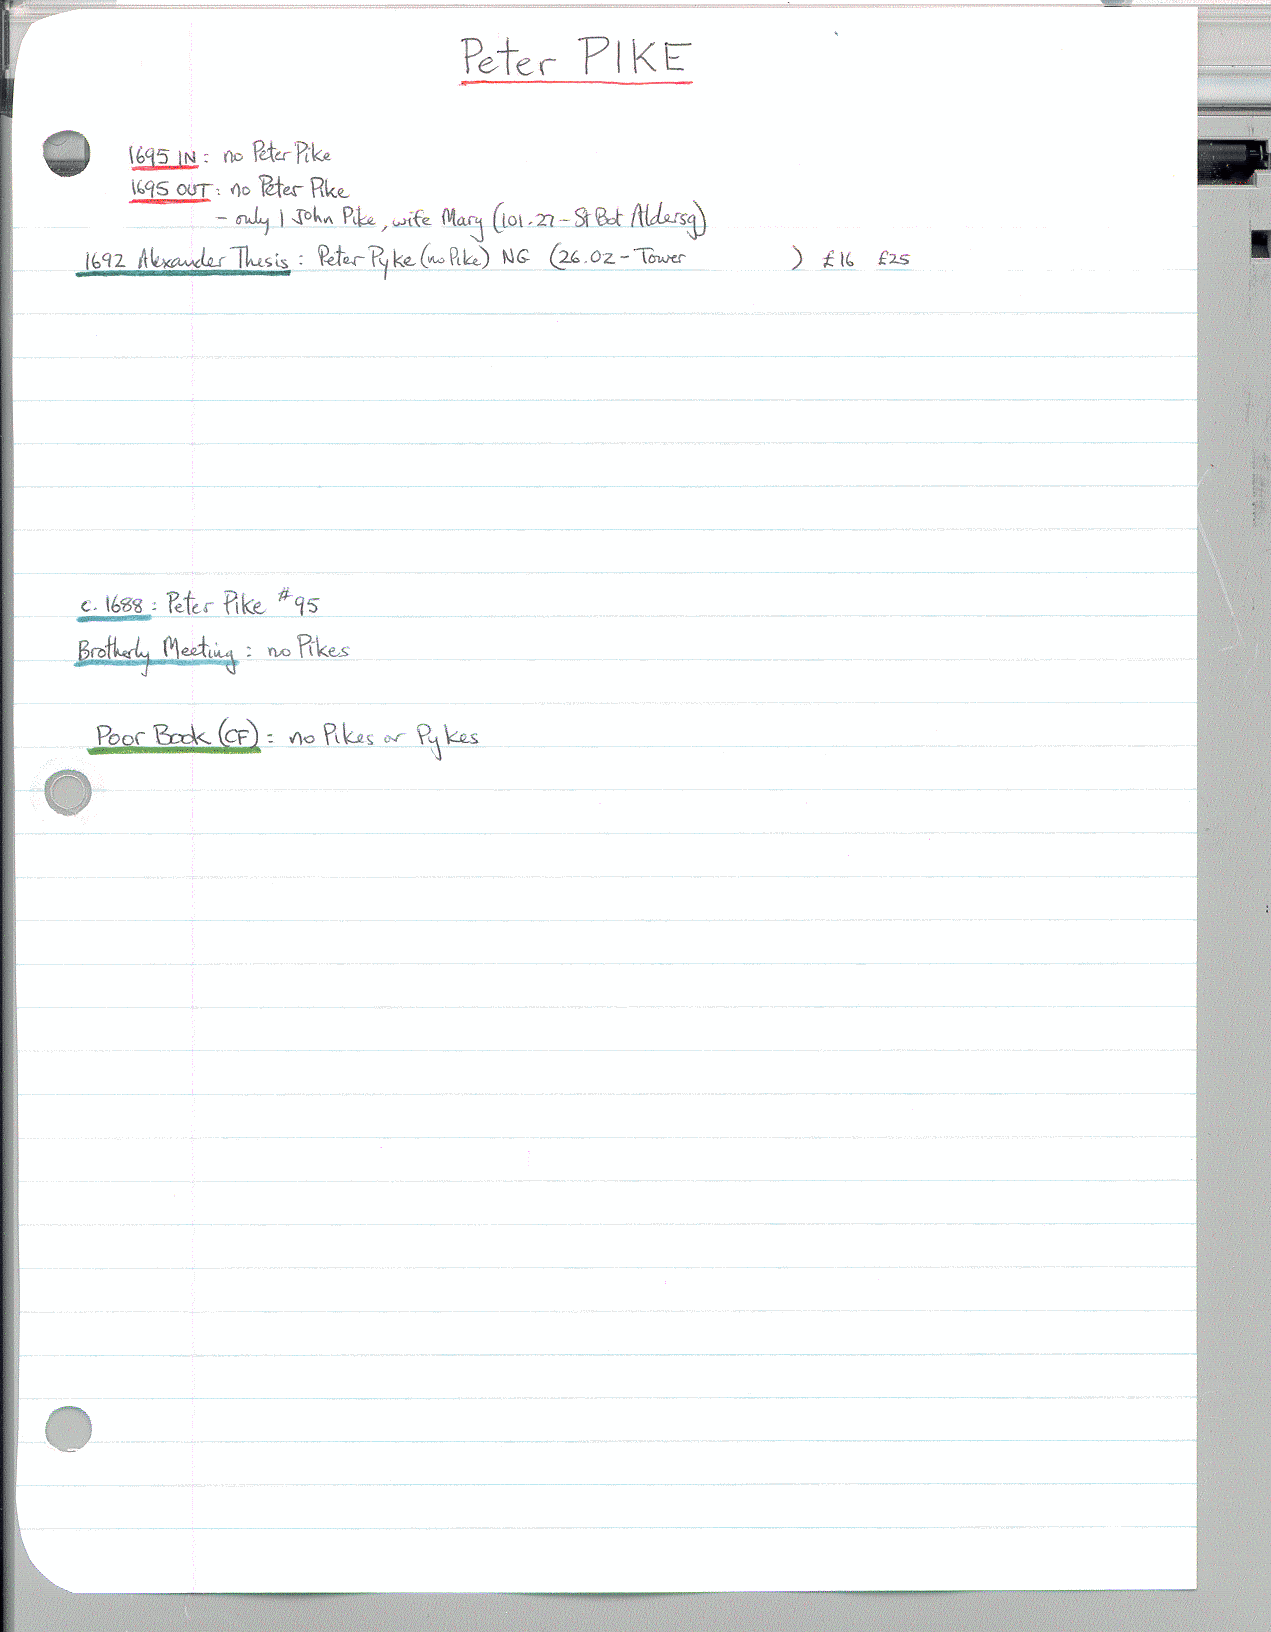 Peter PIKE
1695 IN: no Peter Pike
1695 OUT: no Peter Pike
- only 1 John Pike, wife Mary (101.27 - St Bot Aldersg)
1692 Alexander Thesis: Peter Pyke (no Pike) NG (26.02 - Tower ) £16 £25
c. 1688: Peter Pike #95
Brotherly Meeting: no Pikes
Poor Book (CF): no Pikes or Pykes